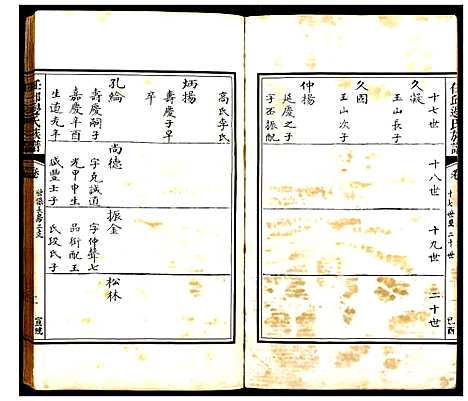 十七世
十八世
十九世
二十世
久凝
玉山長子
久固
玉山次子
仲揚
延慶之子
字丕振配
高氏李氏
炳揚
壽慶子早
卒
孔綸
壽慶嗣子
嘉慶辛酉
生道光辛
尚德
字克誠道
光甲申生
咸豐壬子
振金
字仲聲七
品銜配王
氏段氏子
松林
族譜
卷
十七世至二十世
己酉
宣統